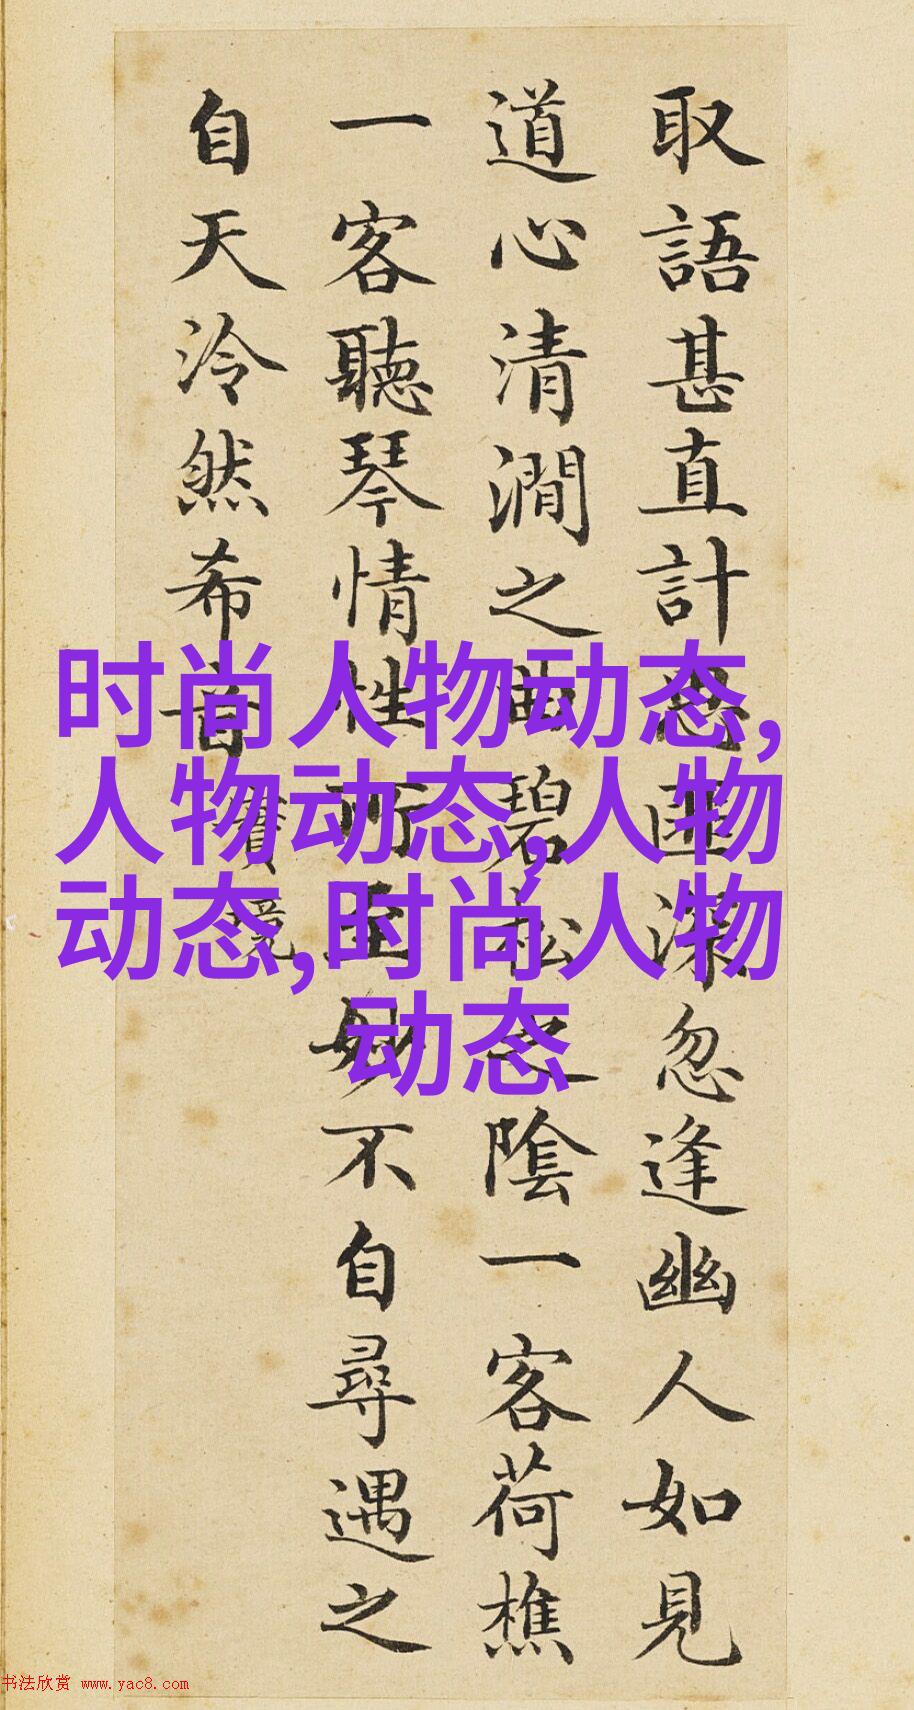 取語甚直計思匪深忽逢幽人如見
道心清澗之曲碧松之陰一客荷樵
一客聽琴情性所至妙不自尋遇之
自天泠然希音
實境
时尚人物动态,
人物动态,人物
动态,时尚人物
动态
书法欣赏 www.yac8.com